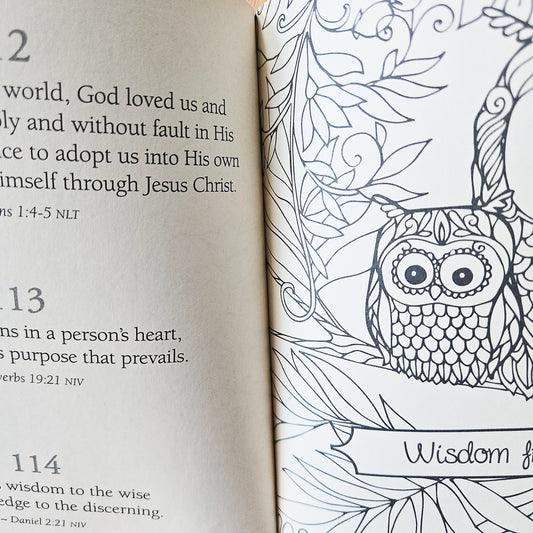 12
world, God loved us and
and without fault in His
to adopt us into His own
through Jesus Christ.
1:4-5 NLT
113
in a person's heart,
purpose that prevails.
19:21 NIV
114
wisdom to the wise
to the discerning.
~ Daniel 2:21 NIV
Wisdom